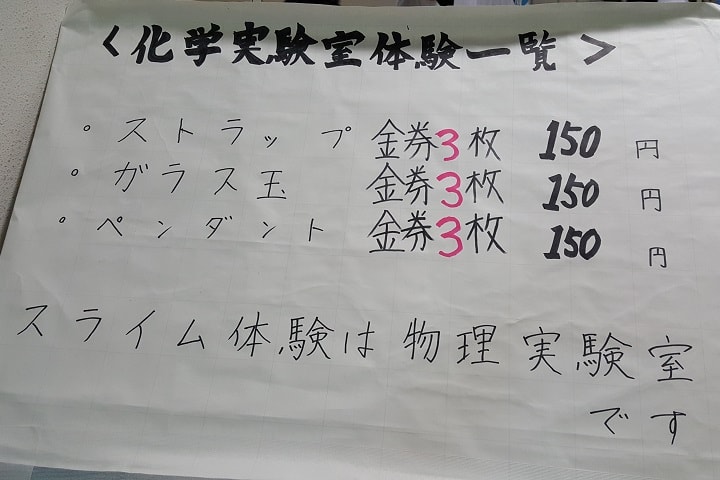 <化学実験室体験一覧>
。ストラップ 金券3枚 150円
。ガラス玉 金券3枚 150円
。ペンダント 金券3枚 150円
スライム体験は物理実験室
です